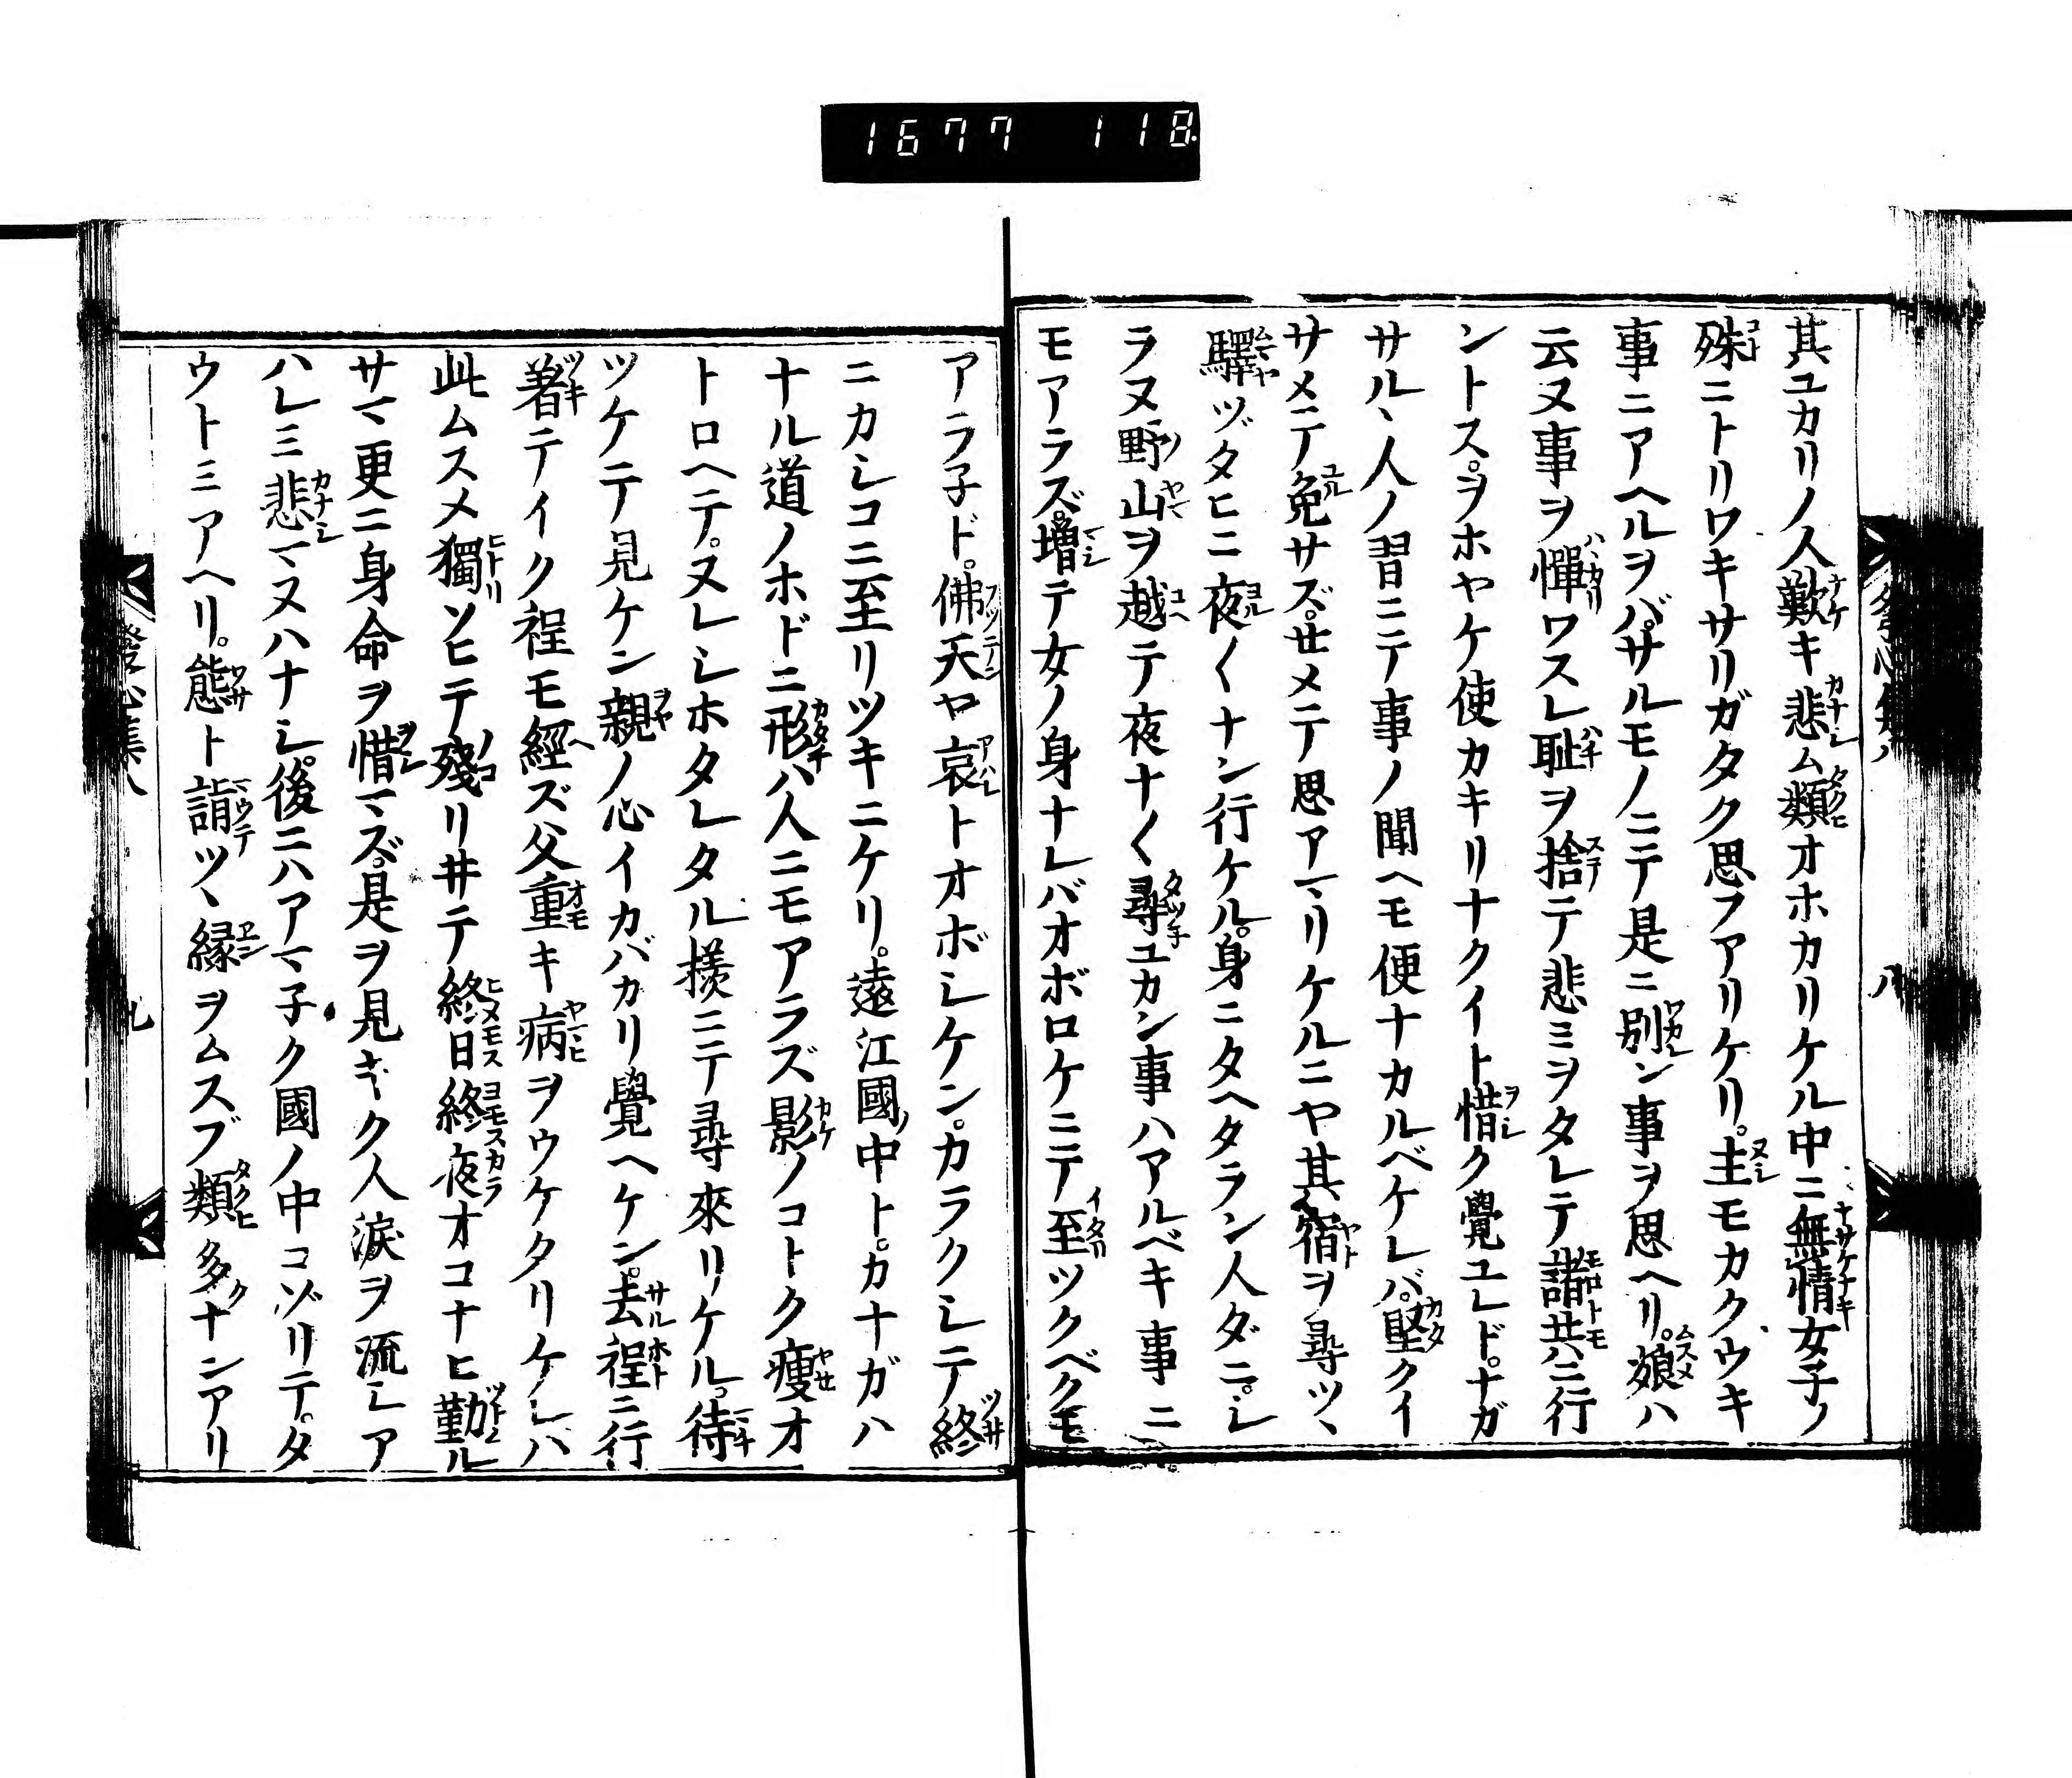 1677 118
其ユカリノ人歎キ悲ム類オホカリケル中ニ無情女子ノ
殊ニトリワキサリガタク思フアリケリ。主モカクウキ
事ニアヘルヲバ。サルモノニテ是ニ別ン事ヲ思ヘリ。娘ハ
云ヌ事ヲ憚ワスレ耻ヲ捨テ悲ミヲタレテ諸共ニ行
ントス。ヲホヤケ使カキリナクイト惜ク覺ユレド。ナガ
サルヽ人ノ習ニテ事ノ聞ヘモ便ナカルベケレバ。堅クイ
サメテ免サズ。せメテ思アマリケルニヤ其宿ヲ尋ツヽ
驛ヅタヒニ夜〱ナン行ケル。身ニタヘタラン人ダニ。シ
ラヌ野山ヲ越テ夜ナ〱尋ユカン事ハアルベキ事ニ
モアラズ。増テ女ノ身ナレバオボロケニテ至ツクベクモ
アラ子ド。佛天ヤ哀トオボシケン。カラクシテ終
ニカシコニ至リツキニケリ。遠江國ノ中ト。カナガハ
ナル道ノホドニ形ハ人ニモアラズ影ノコトク痩オ
トロヘテ。ヌレシホタレタル様ニテ尋來リケル。待
ツケテ見ケン親ノ心イカバカリ覺ヘケン。去程ニ行
着テイク程モ經ズ父重キ病ヲウケタリケレハ
此ムスメ獨ソヒテ殘リ井テ終日終夜オコナヒ勤ル
サマ更ニ身命ヲ惜マズ。是ヲ見キク人涙ヲ流シア
ハレミ悲マヌハナシ。後ニハアマ子ク國ノ中コゾリテ。タ
ウトミアヘリ。態ト詣ツヽ縁ヲムスブ類多クナンアリ
發心集八
九